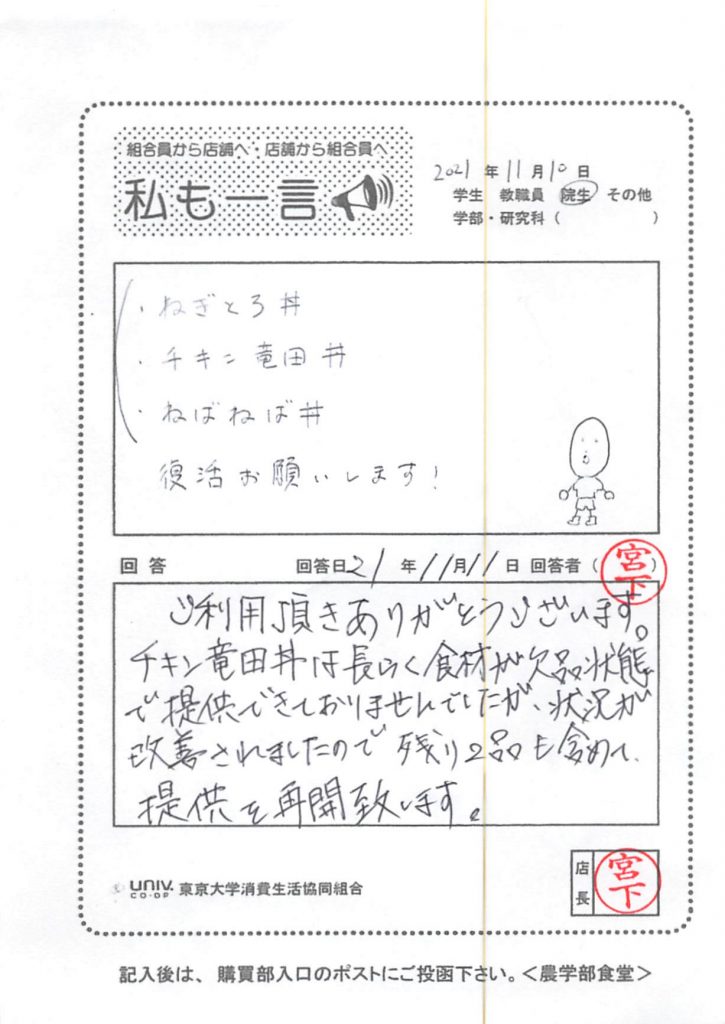 組合員から店舗へ・店舗から組合員へ
私も一言
2021 年 11 月 10 日
学生 教職員 院生 その他
学部・研究科（ ）
・ねぎとろ丼
・チキン竜田丼
・ねばねば丼
復活お願いします！
回答 回答日 21 年 11 月 11 日 回答者（宮下）
ご利用頂きありがとうございます。
チキン竜田丼は長らく食材が欠品状態
で提供できておりませんでしたが、状況が
改善されましたので残り2品も含めて、
提供を再開致します。
UNIV. CO-OP 東京大学消費生活協同組合
店長 宮下
記入後は、購買部入口のポストにご投函下さい。＜農学部食堂＞